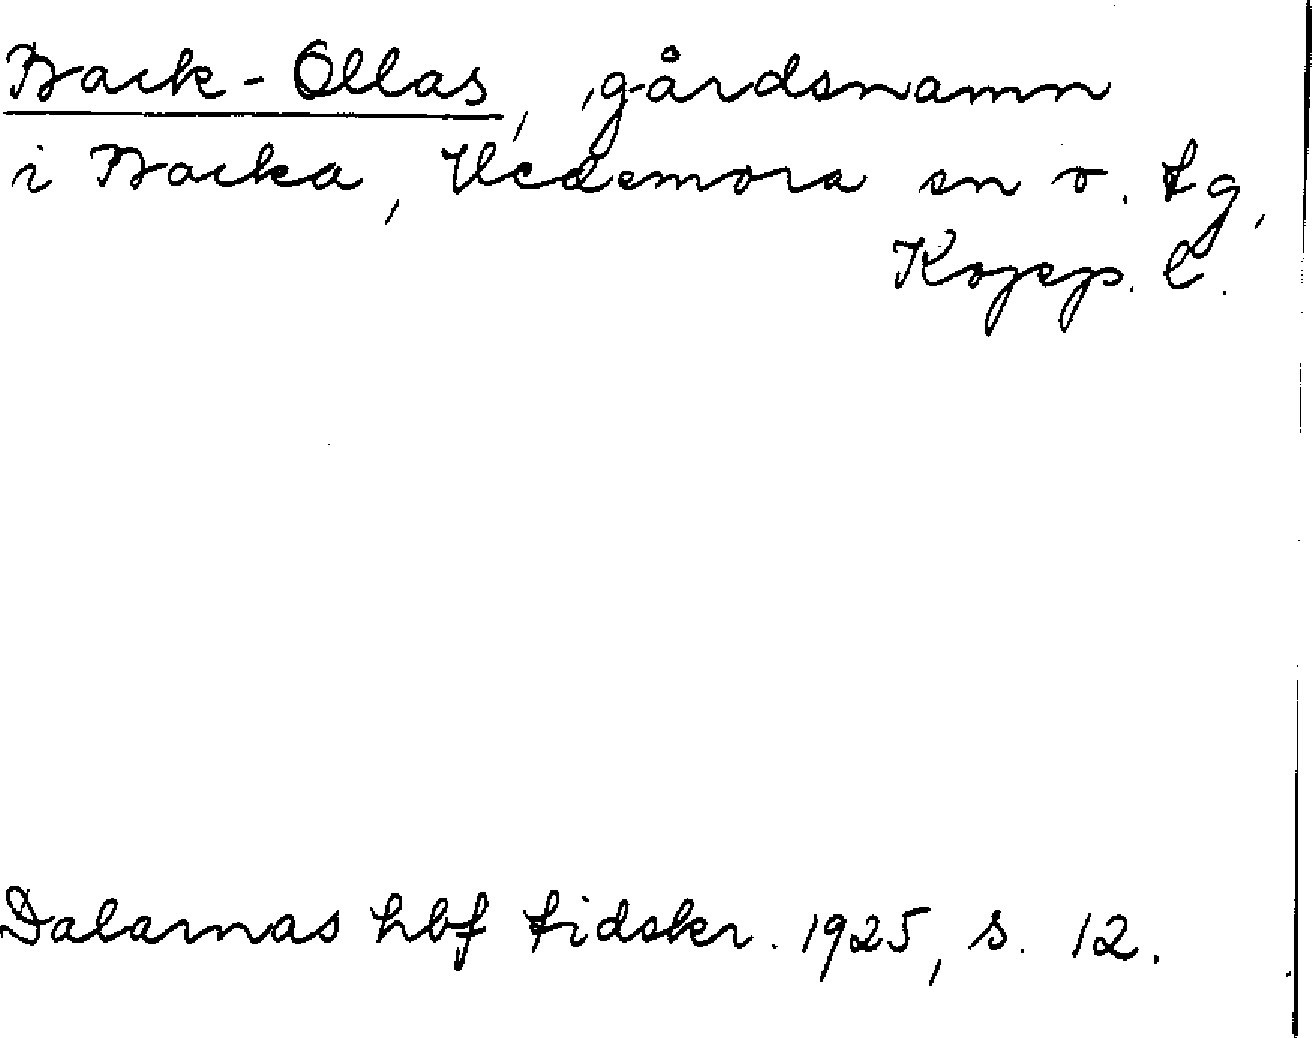 Back-Ollas, gårdsnamn
i Backa, Vedemora sn o. tg,
Kopp. l.
Dalarnas hbf tidskr. 1925, s. 12.